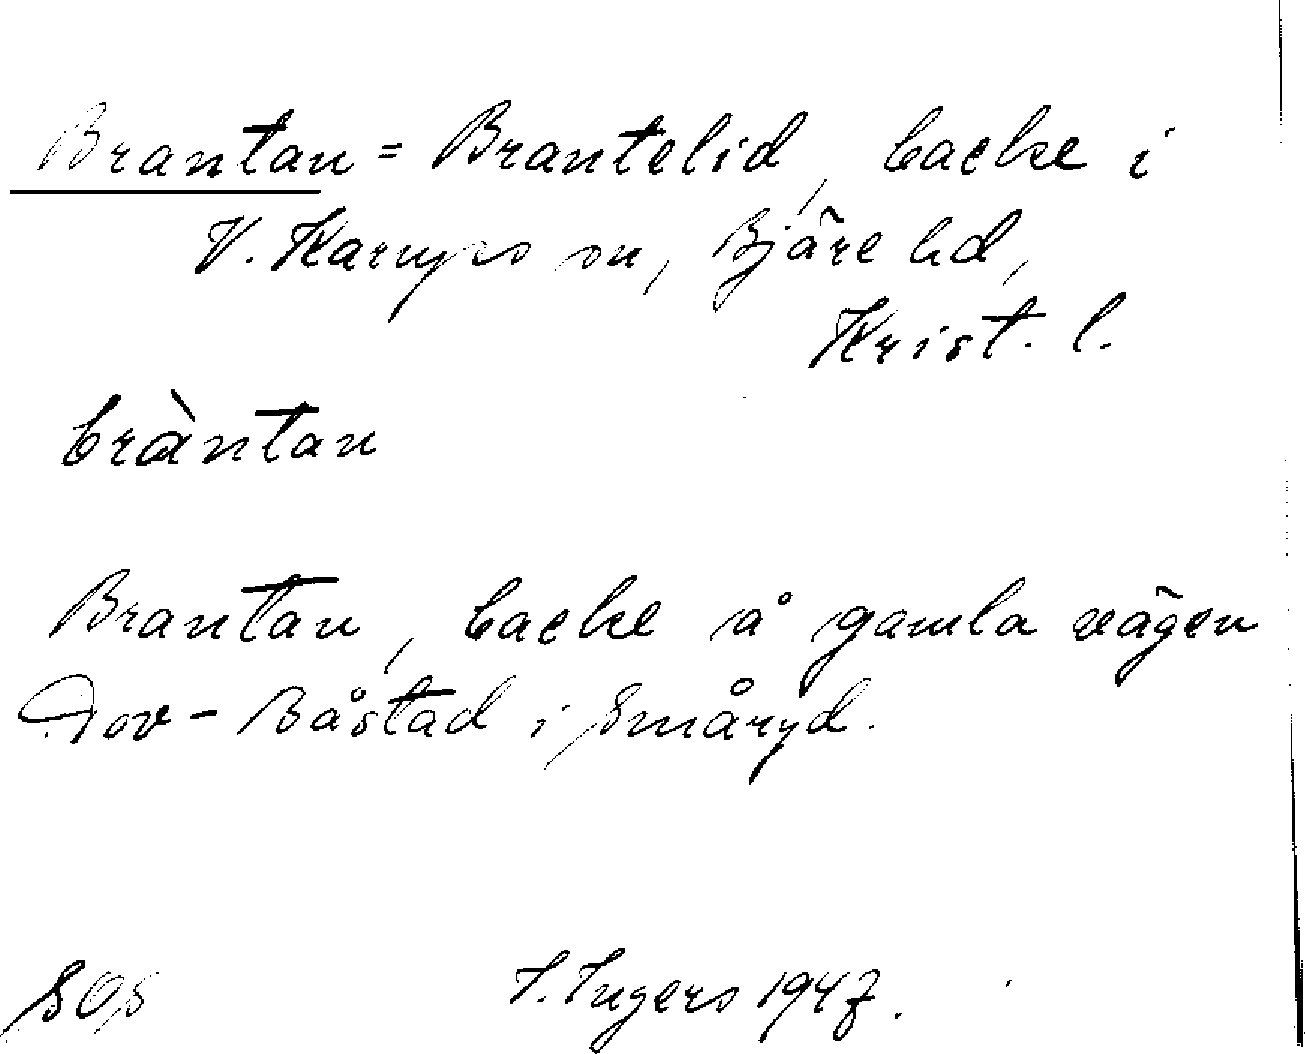 Brantan = Brantelid, backe i
V. Karups sn, Bjäre hd,
Krist. l.
bràntan
Brantan, backe å gamla vägen
Dov - Båstad i Småryd.
SOS
I. Ingers 1947.